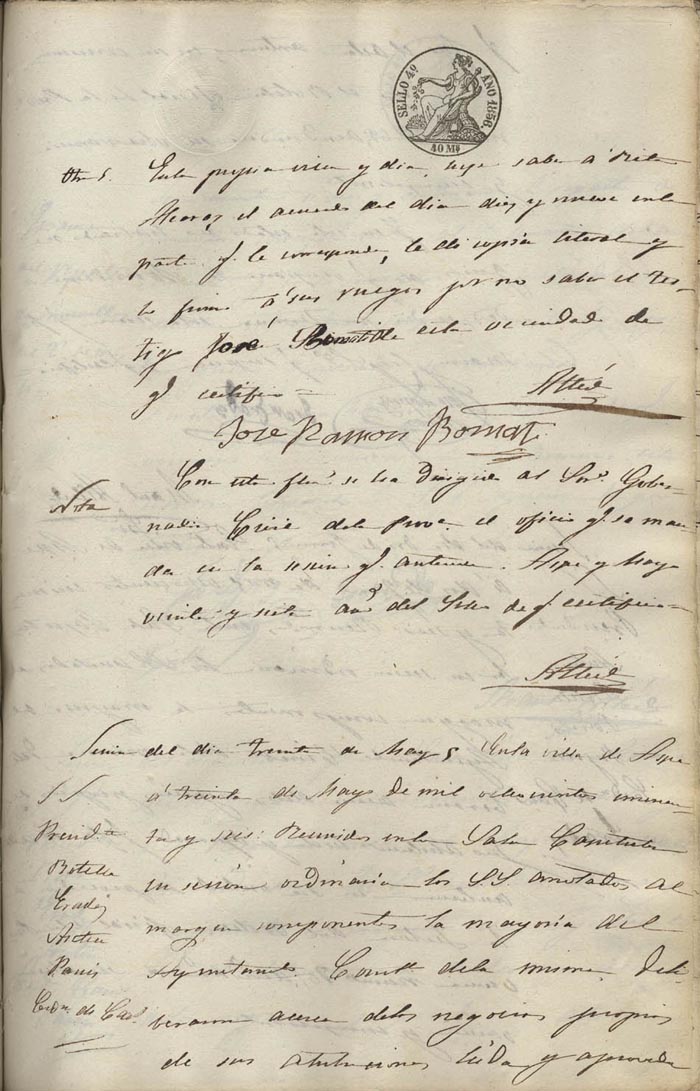 SELLO 4º AÑO 1856.
40 Ms
Otra. En la propia villa y dia, hice saber á
Alcaraz el acuerdo del dia diez y nueve en la
parte q. le corresponde, le di copia literal y
lo firma á sus ruegos por no saber el tes-
tigo José de esta vecindad de
q. certifico
José Ramon Bornat
Nota
Con esta fha se ha dirigido al Sor. Gober-
nador Civil de la Prova. el oficio q. se man-
da en la sesion q. antecede. Aspe y Mayo
veinte y siete del de q. certifico
Sesion del dia treinta de Mayo En la villa de Aspe
á treinta de Mayo de mil ochocientos cincuen-
ta y seis: Reunidos en la Sala Capitular
en sesion ordinaria los S.S. anotados al
margen componentes la mayoria del
Ayuntamto. Constl. de la misma. Deli-
beraron acerca de los negocios propios
de sus atribuciones leida y aprobada
S S
Presidte.
Botella